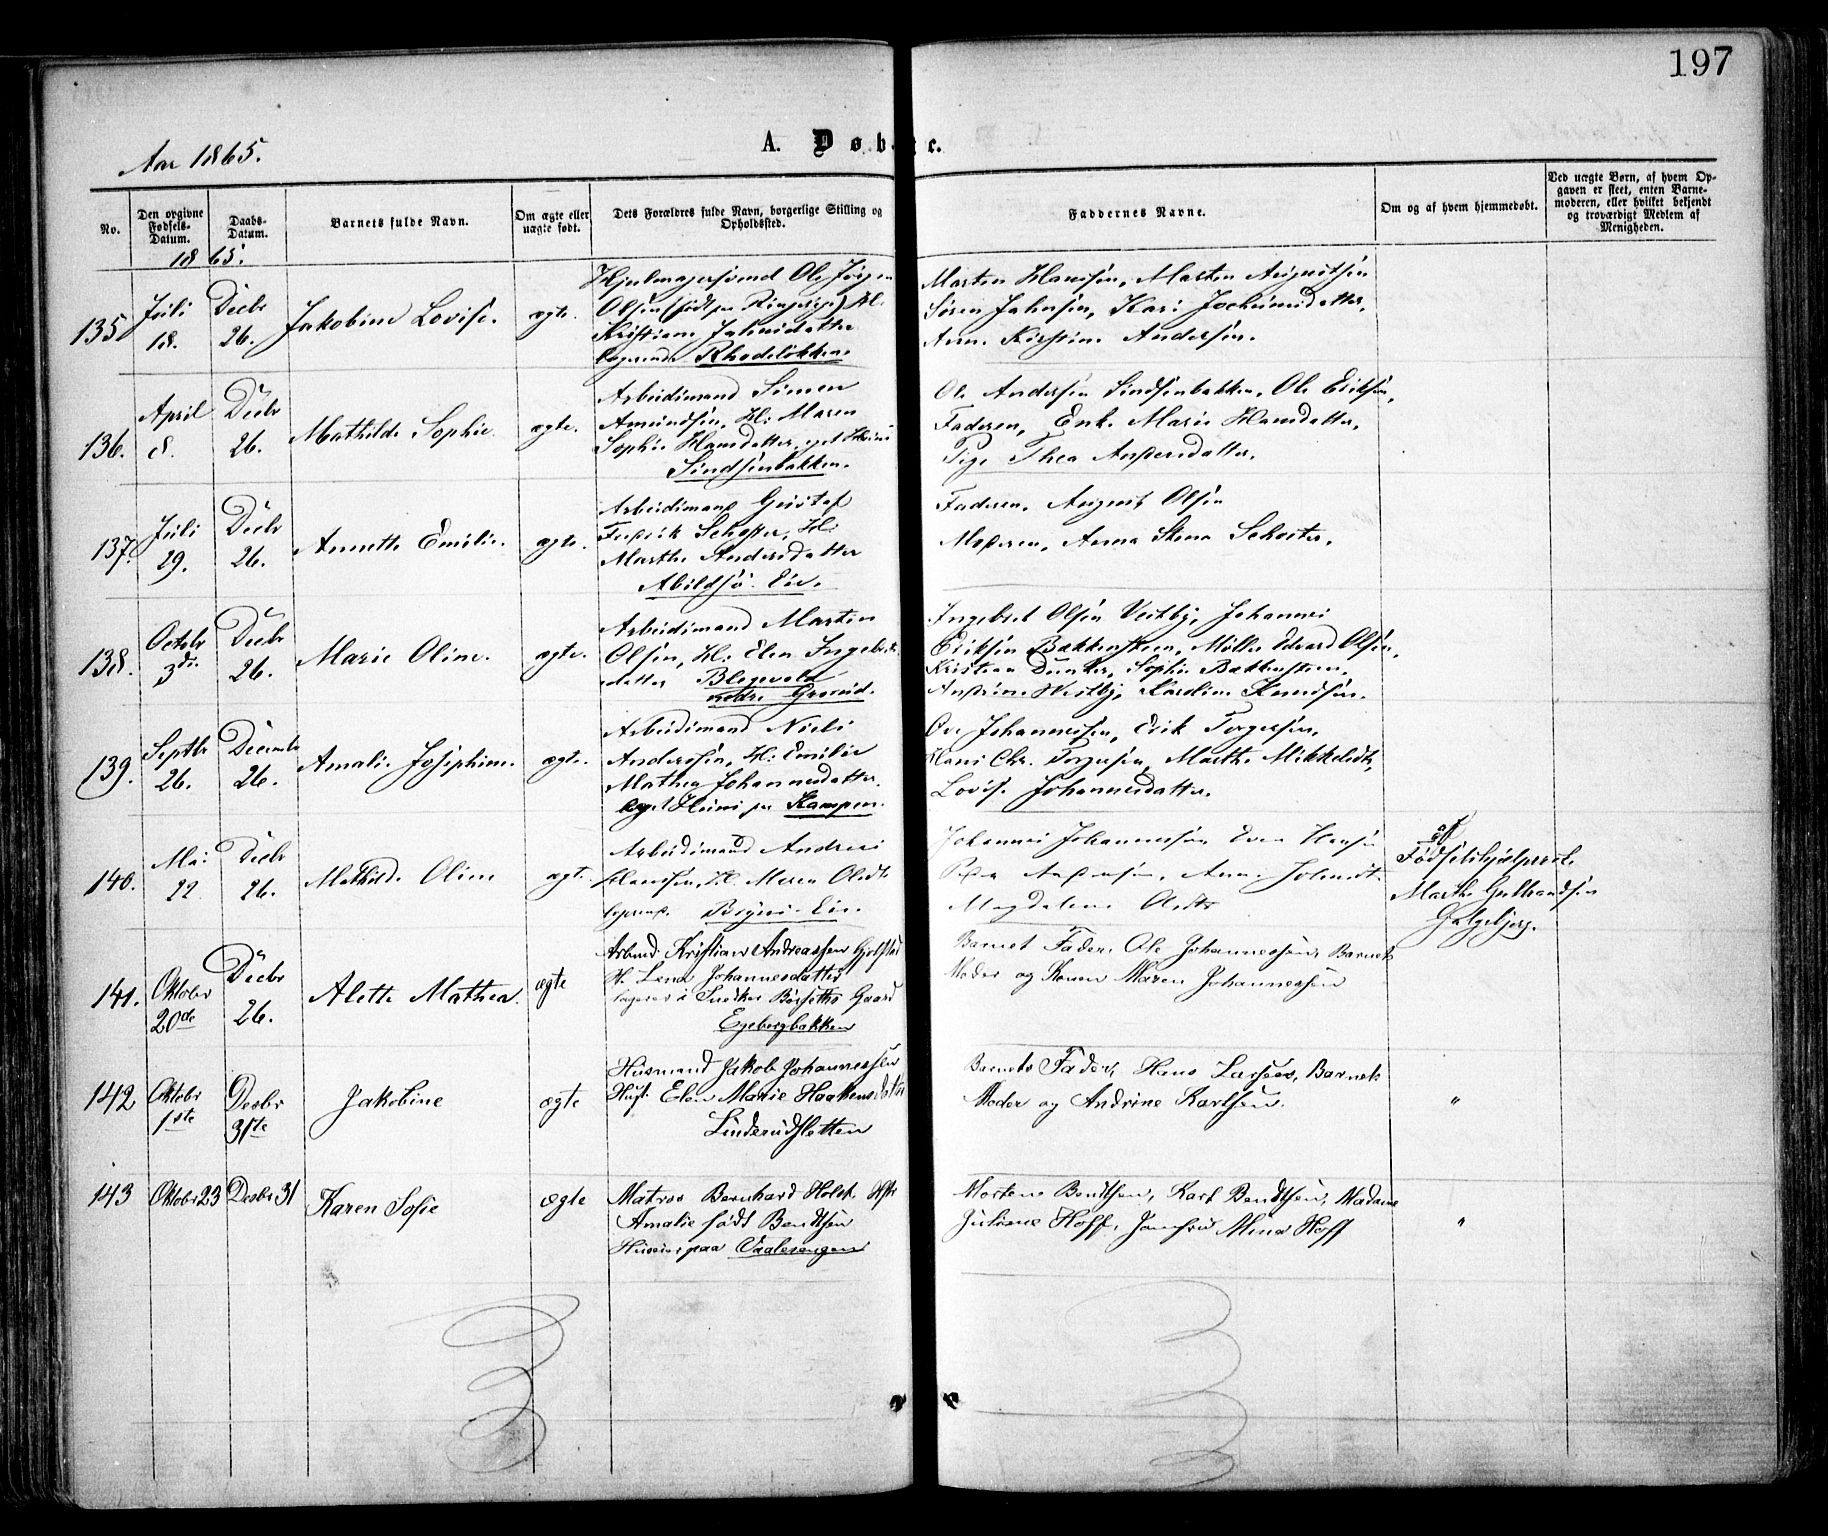 197
Aar 1865.
A. Døbte.
No.
Den opgivne Fødsels-Datum.
Daabs-Datum.
Barnets fulde Navn.
Om ægte eller uægte født.
Dets Forældres fulde Navn, borgerlige Stilling og Opholdssted.
Faddernes Navne.
Om og af hvem hjemmedøbt.
Ved uægte Børn, af hvem Opgaven er skeet, enten Barnemoderen, eller hvilket bekjendt og troværdigt Medlem af Menigheden.
1865.
135 Juli 18. Decbr 26. Jakobine Lovise. ægte.
Hjulmagersvend Ole Jørgen
Olsen (født paa Ringerige) H.
Kristiane Jahnsdatter
logerende Rhodeløkken.
Marten Hansen, Marten Augustsen
Søren Jahnsen, Kari Jochumsdatter,
Anne Kirstine Andersen.
136. April 8. Decbr 26. Mathilde Sophie. ægte.
Arbeidsmand Simen
Amundsen, H: Maren
Sophie Hansdatter, eget Huus
Sindsenbakken.
Ole Andersen Sindsenbakken, Ole Eriksen,
Faderen, Enke Marie Hansdatter,
Pige Thea Andersdatter.
137. Juli 29. Decbr 26. Annette Emilie. ægte.
Arbeidsmand Gustaf
Fredrik Schøster, H:
Marthe Andersdatter
Abildsø Eie.
Faderen, August Olsen
Moderen, Anna Stena Schøster.
138. Octobr 3die Decbr 26. Marie Oline. ægte.
Arbeidsmand Martin
Olsen, H: Elen Ingebrets-
datter Blegevold
nedre Grorud.
Ingebret Olsen Vestby, Johannes
Eriksen Bakkensteen, Møller Edvard Olsen,
Kristian Dunker, Sophie Bakkensteen,
Andrine Westby, Karoline Knudsen.
139. Septbr 26. Decembr 26. Amalie Josephine. ægte.
Arbeidsmand Niels
Andersen, H: Emilie
Mathea Johannesdatter.
eget Huus paa Kampen.
Ole Johannesen, Erik Torgersen,
Hans Chr. Torgersen, Marthe Mikkelsdtr,
Lovise Johannesdatter.
140. Mai 22 Decbr 26. Mathilde Oline ægte.
Arbeidsmand Andreas
Hansen, H. Maren Olsdtr
logerende Bryns Eie.
Johannes Johannessen Even Hansen
Peder Andersen, Anne
Magdalene Olsdtr
af
Fødselshjælperske
Marthe Gulbrandsen
Galgebjerg.
141. Oktober 20de Decbr 26. Alette Mathea. ægte
Arbmd. Kristian Andreassen
H. Lena Johannesdatter
logerer i Snedker Børseths Gaard
Egebergbakken
Barnets Fader, Ole Johannessen, Barnets
Moder og Konen Maren Johannessen
142 Oktobr 1ste Desbr 31te Jakobine ægte
Husmand Jakob Johannessen
Hust. Elen Marie Haakensdatter
Linderudsletten
Barnets Fader, Hans Larsen, Barnets
Moder og Andrine Karlsen.
"
143 Oktober 23 Desbr 31 Karen Sofie ægte
Matros Bernhard Holst Hst
Amalie født Bendtsen
Huseier paa Vaalerengen
Morten Bendtsen, Karl Bendtsen, Madame
Juliane Hoff, Jomfru Mina Hoff
"